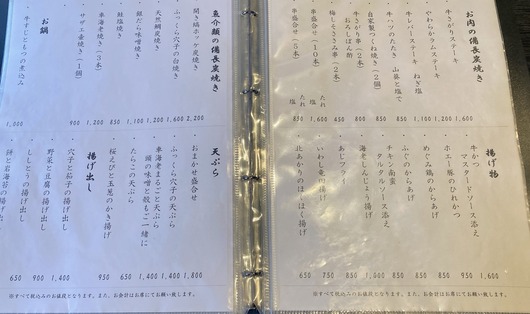 お肉の備長炭焼き
・牛さがりステーキ
・やわらかラムステーキ
・牛レバーステーキ ねぎ塩
・牛ハツのたたき 山葵と塩で
・自家製つくね焼き(2個)
・牛さがり串(2本)
おろしぽん酢
・梅しそささみ串(2本)
・串盛合せ(10本) たれ 塩
・串盛合せ(5本) たれ 塩
揚げ物
・牛かつ
マスタードソース添え 1,600
・ホエー豚のひれかつ 950
・めぐみ鶏のからあげ 850
・ふぐのからあげ 850
・チキン南蛮
タルタルソース添え 850
・海老しんじょう揚げ 1,000
・あじフライ 850
・いわし竜田揚げ 750
・北あかりのほくほく揚げ 650
※すべて税込みのお値段となります。また、お会計はお席にてお願い致します。
魚介類の備長炭焼き
・開き縞ホッケ炭焼き 2,200
・ふっくら穴子の白焼き 1,600
・天然鯛炭焼き 1,200
・銀だら味噌焼き 1,100
・鮭塩焼き 850
・車海老焼き(3本) 1,200
・サザエ壷焼き(1個) 900
お鍋
・牛すじともつの煮込み 1,000
天ぷら
・おまかせ盛合せ 1,800
・ふっくら穴子の天ぷら 1,400
・車海老まるごと天ぷら
頭の味噌と殻もご一緒に 1,400
・たらこの天ぷら 650
・桜えびと玉葱のかき揚げ 950
揚げ出し
・穴子と茄子の揚げ出し 1,400
・野菜と豆腐の揚げ出し 900
・ししとうの揚げ出し 650
・餅と岩海苔の揚げ出
※すべて税込みのお値段となります。また、お会計はお席にてお願い致します。